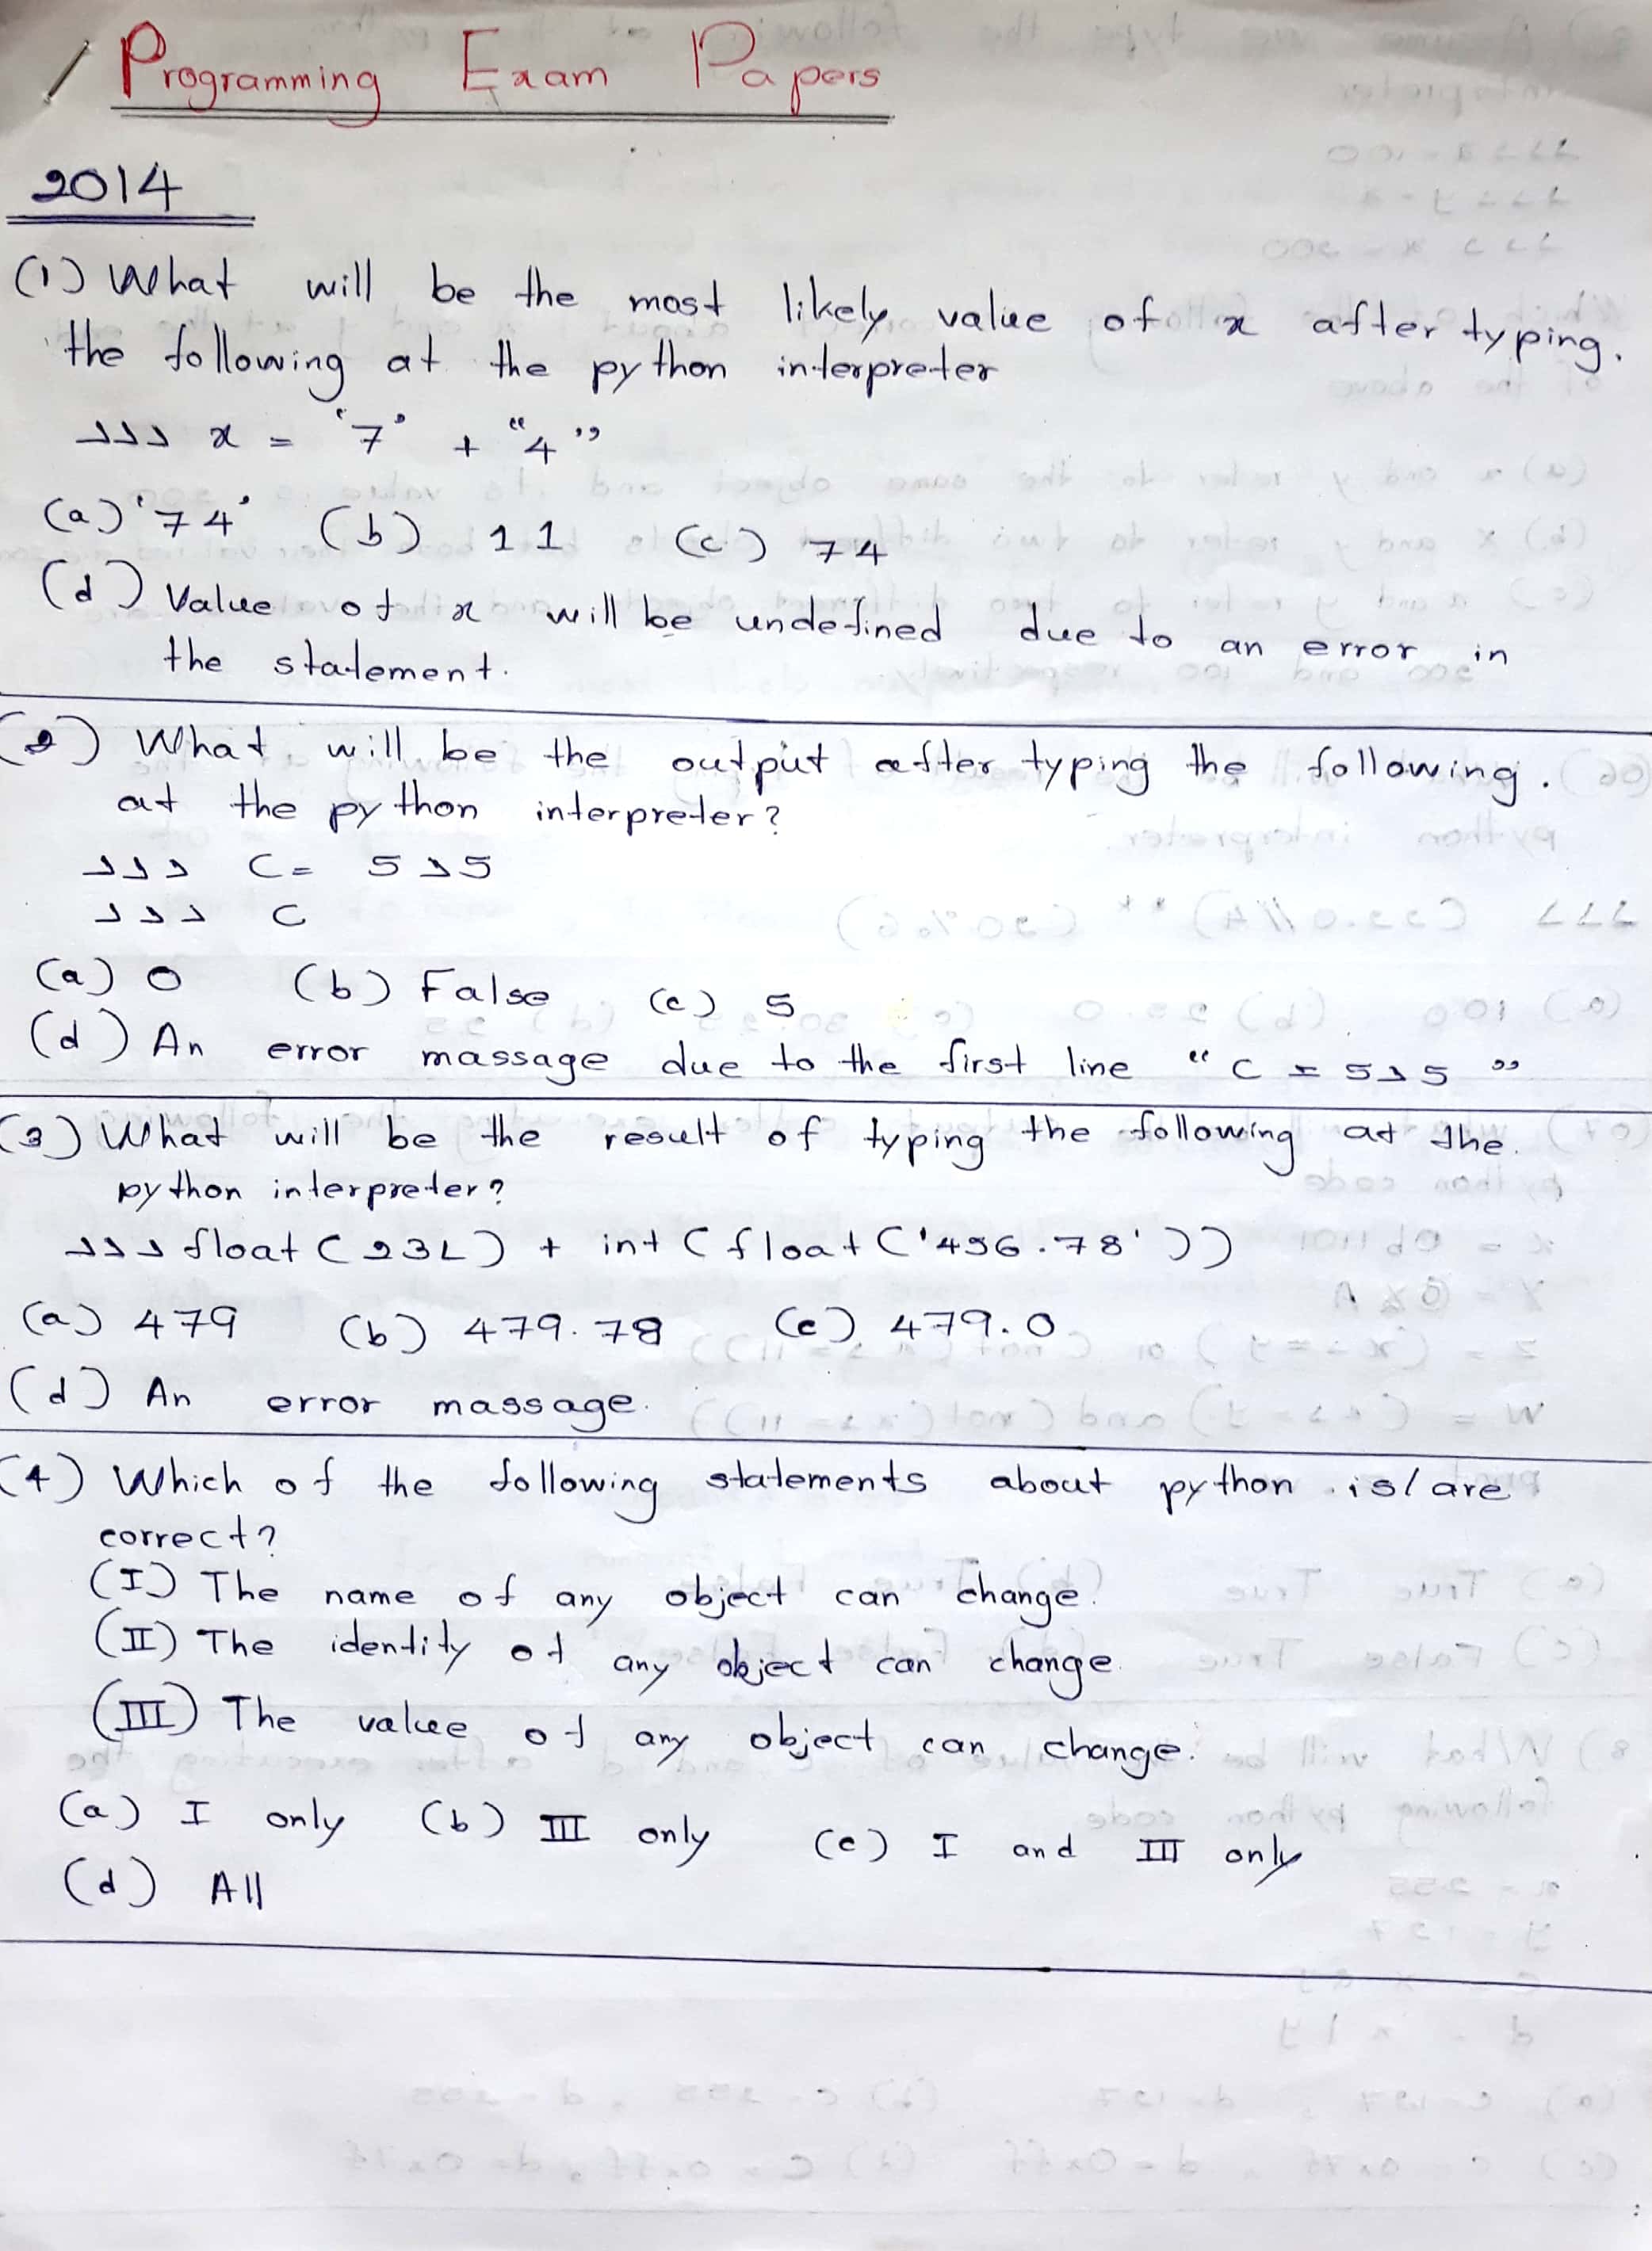 Programming Exam Papers
2014
(1) What will be the most likely value of x after typing.
the following at the python interpreter
>>> x = '7' + "4"
(a) '74' (b) 11 (c) 74
(d) Value of x will be undefined due to an error in
the statement.
(2) What will be the output after typing the following.
at the python interpreter?
>>> C = 5>5
>>> C
(a) 0 (b) False (c) 5
(d) An error massage due to the first line "C = 5>5"
(3) What will be the result of typing the following at the.
python interpreter?
>>> float(23L) + int(float('456.78'))
(a) 479 (b) 479.78 (c) 479.0
(d) An error massage.
(4) Which of the following statements about python is/are
correct?
(I) The name of any object can change.
(II) The identity of any object can change.
(III) The value of any object can change.
(a) I only (b) III only (c) I and III only
(d) All